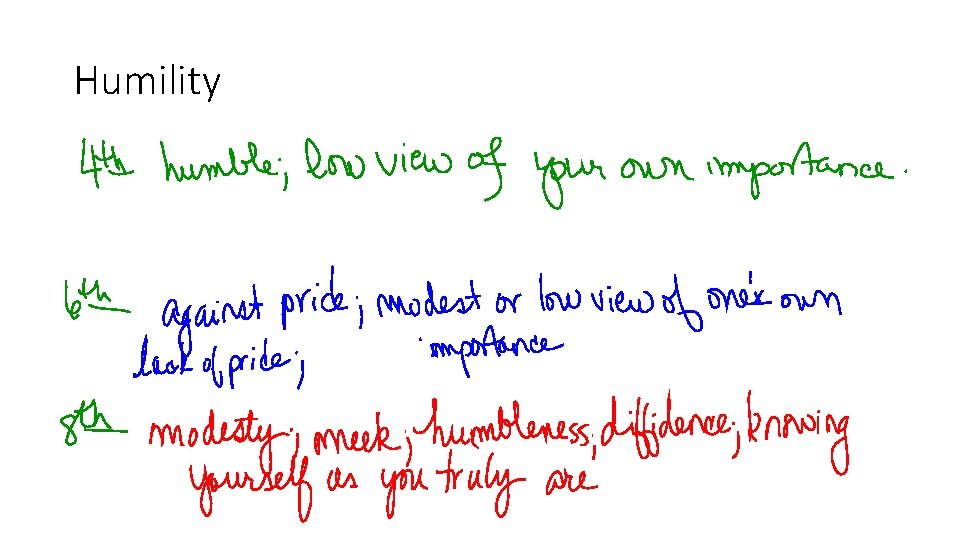 Humility
4th humble; low view of your own importance.
6th against pride; modest or low view of one's own
lack of pride; importance
8th modesty; meek; humbleness; diffidence; knowing
yourself as you truly are